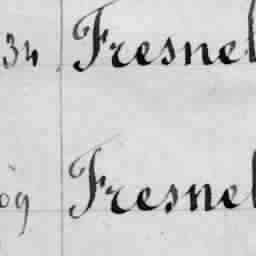 34 Fresnel
09 Fresnel